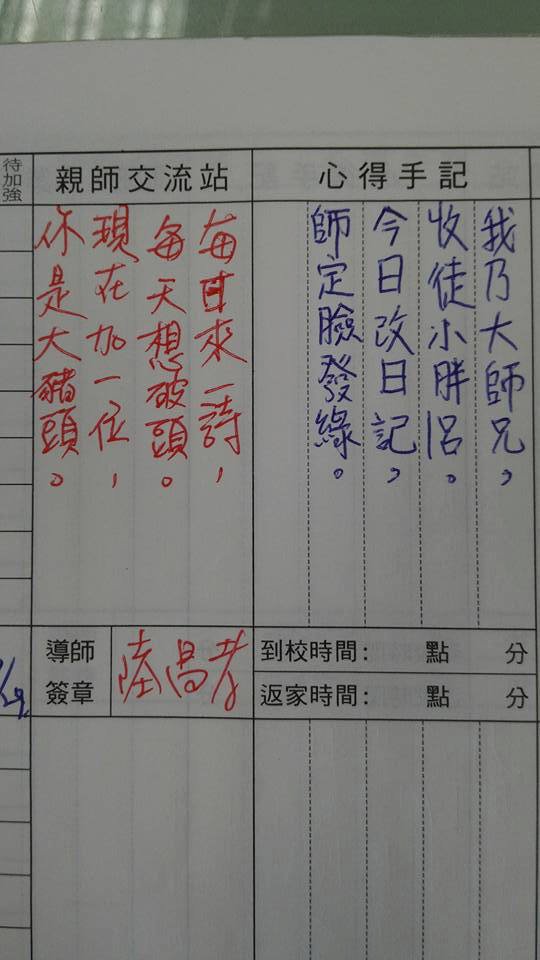 心得手記
我乃大師兄,
收徒小胖呂。
今日改日記,
師定臉發綠。
親師交流站
每日來一詩,
每天想破頭。
現在加一位,
你是大豬頭。
待加強
到校時間: 點 分
返家時間: 點 分
導師
簽章